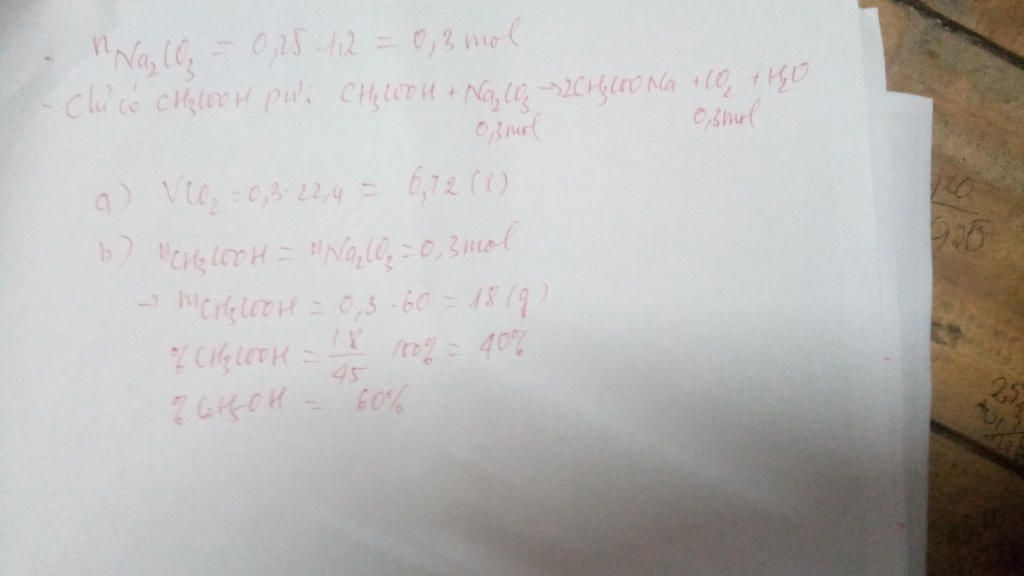 nNa2CO3 = 0,25.1,2 = 0,3 mol
- Chỉ có CH3COOH pư: CH3COOH + Na2CO3 → 2CH3COONa + CO2 + H2O
0,3mol 0,3mol
a) VCO2 = 0,3.22,4 = 6,72 (l)
b) nCH3COOH = nNa2CO3 = 0,3mol
→ mCH3COOH = 0,3.60 = 18 (g)
% CH3COOH = 18/45 100% = 40%
= 60%